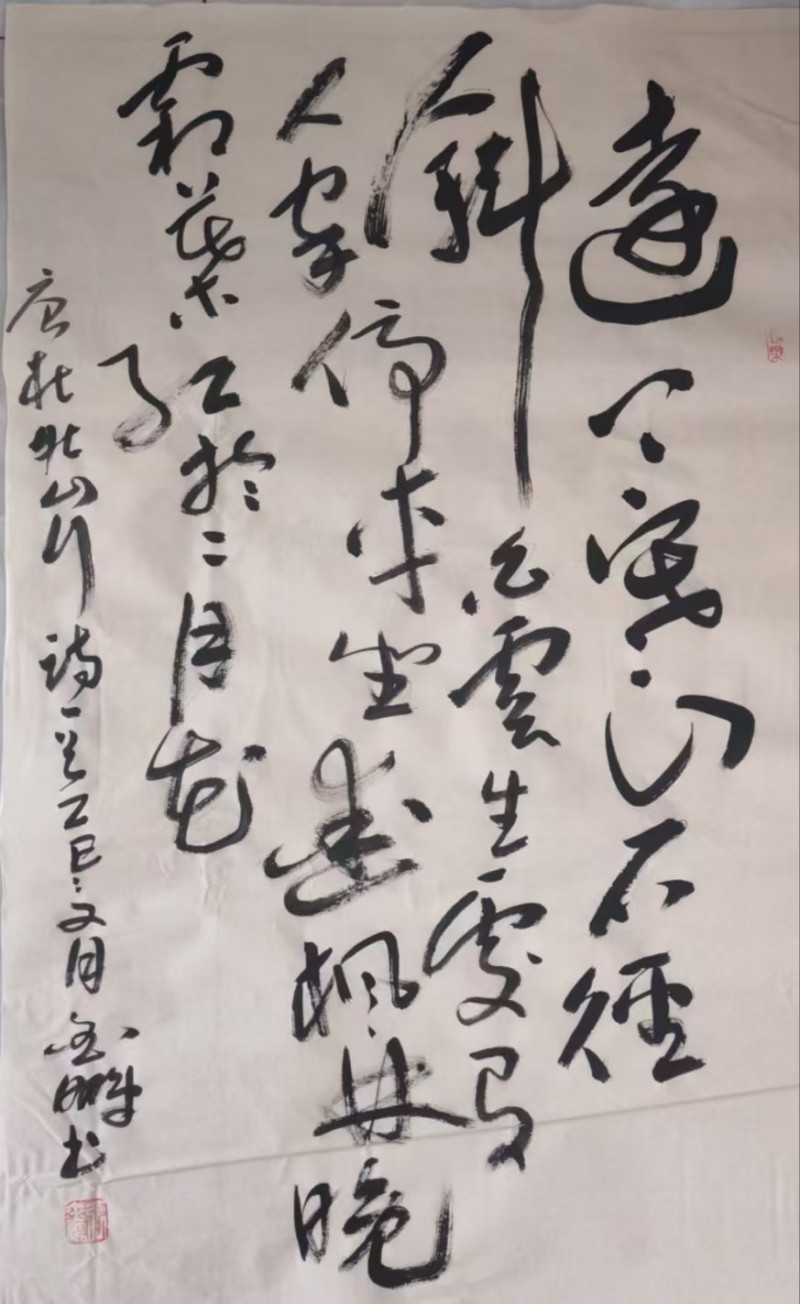 遠上寒山石徑
斜白雲生處有
人家停車坐愛楓林晚
霜葉紅於二月花
唐杜牧山行詩一首乙巳月書